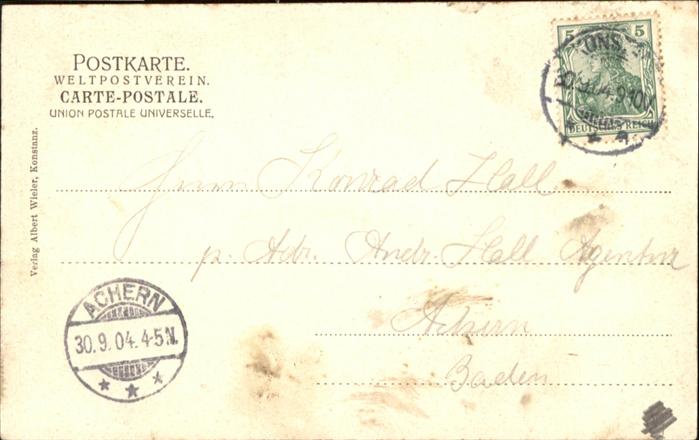 POSTKARTE.
WELTPOSTVEREIN.
CARTE-POSTALE.
UNION POSTALE UNIVERSELLE.
5 5
DEUTSCHES REICH
KONS
30.9.04.9-10V.
Verlag Albert Wieler, Konstanz.
Herrn Konrad Hall
p. Adr. Andr. Hall Agentur
Achern
Baden
ACHERN
30.9.04.4-5N.